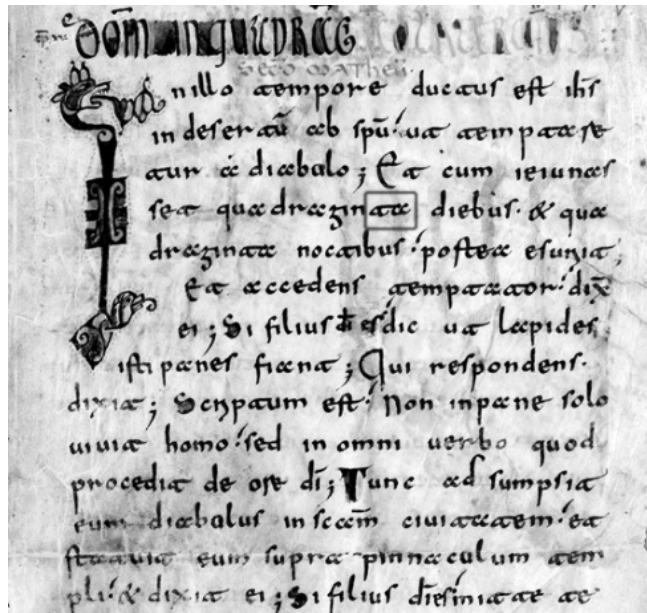 DŌM IN QUADRAG
SECD MATHEU
In illo tempore ductus est ihs̄
in desertū ab spū· ut temptare
tur a diabalo; Et cum ieiunas
set quadraginta diebus· & qua
draginta noctibus· postea esuriit;
Et accedens temptator· dix̄
ei; Si filius dī es dic ut lapides
isti panes fiant; Qui respondens·
dixit; Scriptum est· Non in pane solo
uiuit homo· sed in omni uerbo quod
procedit de ore dī; Tunc ad sumpsit
eum diabalus in scām ciuitatem· et
statuit eum supra pinnaculum tem
pli· & dixit ei; Si filius dī es mitte te